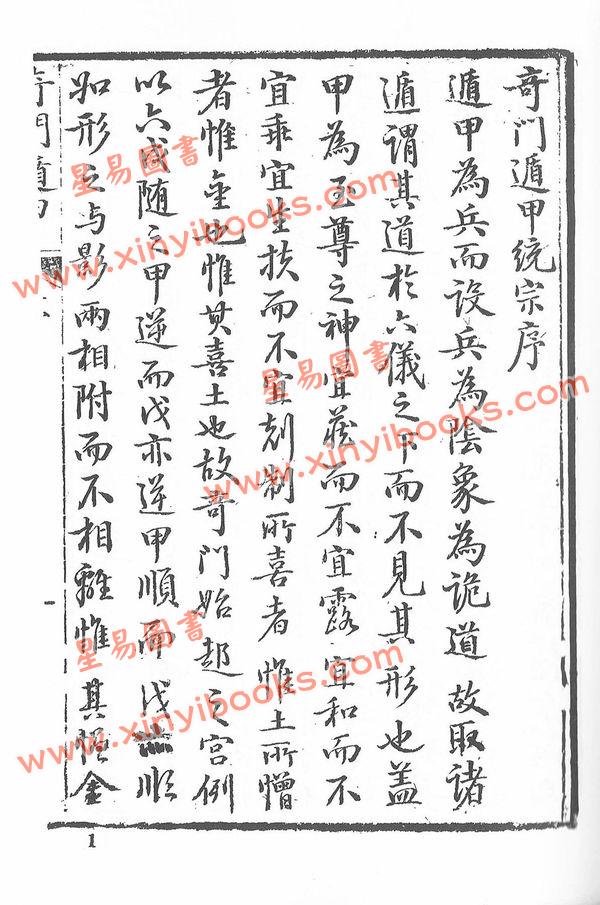 奇門遁甲统宗序
遁甲為兵而設兵為陰象為詭道故取諸
遁謂其道於六儀之下而不見其形也盖
甲為至尊之神宜藏而不宜露宜和而不
宜乖宜生扶而不宜尅制所喜者惟土所憎
者惟金也惟其喜土也故奇門始起之宮例
以六戊随之甲逆而戊亦逆甲順而戊亦順
如形之与影兩相附而不相離惟其憎金
奇門遁甲
1
星易圖書
www.xinyibooks.com
星易圖書
www.xinyibooks.com
星易圖書
www.xinyibooks.com